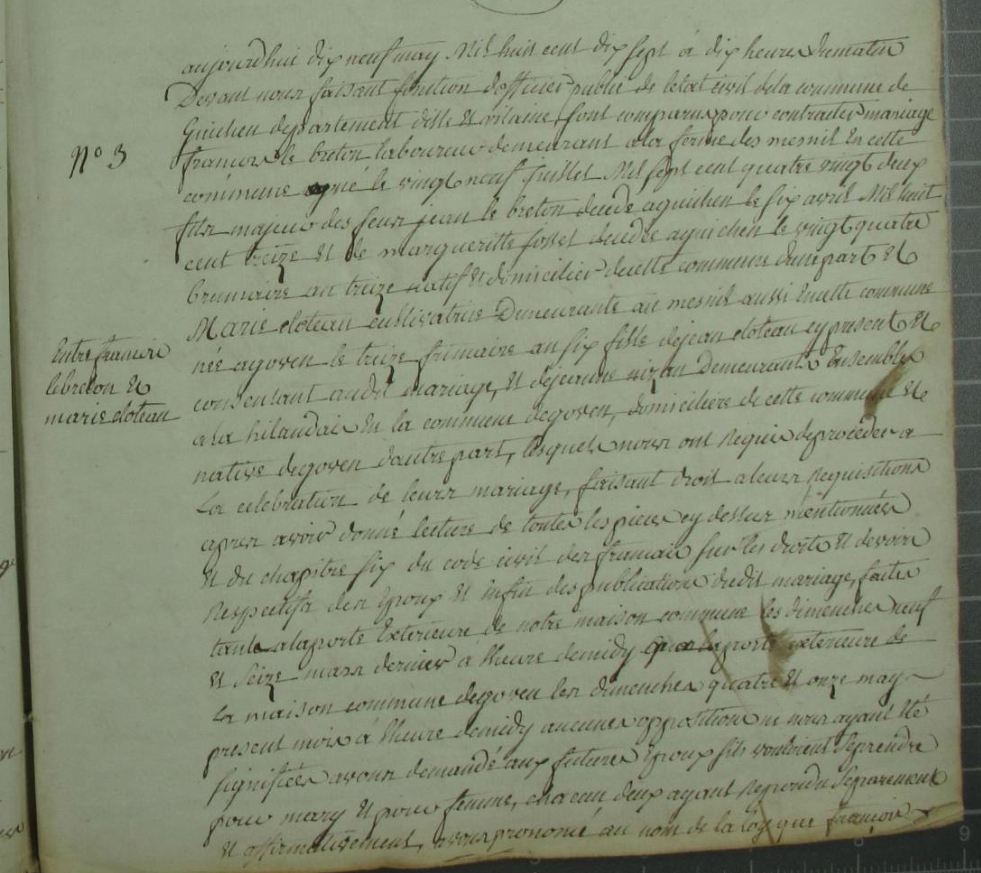 aujourdhui dix neuf may Mil huit cent dix sept à dix heures dumatin
Devant nous faisant fonction dofficier public de letat civil dela commune de
Guichen departement dille et vilaine, sont comparus pour contracter mariage
N° 3
francois le breton laboureur demeurant ala ferme des mesnil En cette
commune né le vingt neuf juillet Mil sept cent quatre vingt deux
fils majeur des feux jean le breton decedé aguichen le six avril Mil huit
cent treize et de margueritte fossel decedée aguichen le vingt quatre
brumaire an treize natif et domicilier decette commune dunepart et
Marie cloteau cultivatrice Demeurante au mesnil aussi Encette commune
Entre francois
lebreton et
marie cloteau
née agoven le treize frimaire an six fille dejean cloteau cy present et
consentant audit mariage, et dejeanne nizan demeurants Ensembles
ala hilandais En la commune degoven, domiciliere de cette commune et
native degoven dautre part, lesquels nous ont Requis deproceder a
La celebration de leurs mariage, faisant droit aleurs Requisitions
apres avoir donné lecture de toutes les pieces cy dessus mentionnées
et du chapitre six du code civil des francais sur les droits et devoirs
Respectifs des Epoux et Enfin des publications dudit mariage, faites
tante alaporte Exterieure de notre maison commune les dimenches neuf
et seize mars dernier a lheure demidy laporte exterieure de
La maison commune degoven les dimenches quatre et onze may
present mois à lheure demidy aucunes opposition ne nous ayant Eté
signifiées avons demandé aux futurs Epoux sils vouloient seprendre
pour mary et pour femme, chacun deux ayant Repondu separement
et affirmativement, avons prononcé au nom de la loy que francois